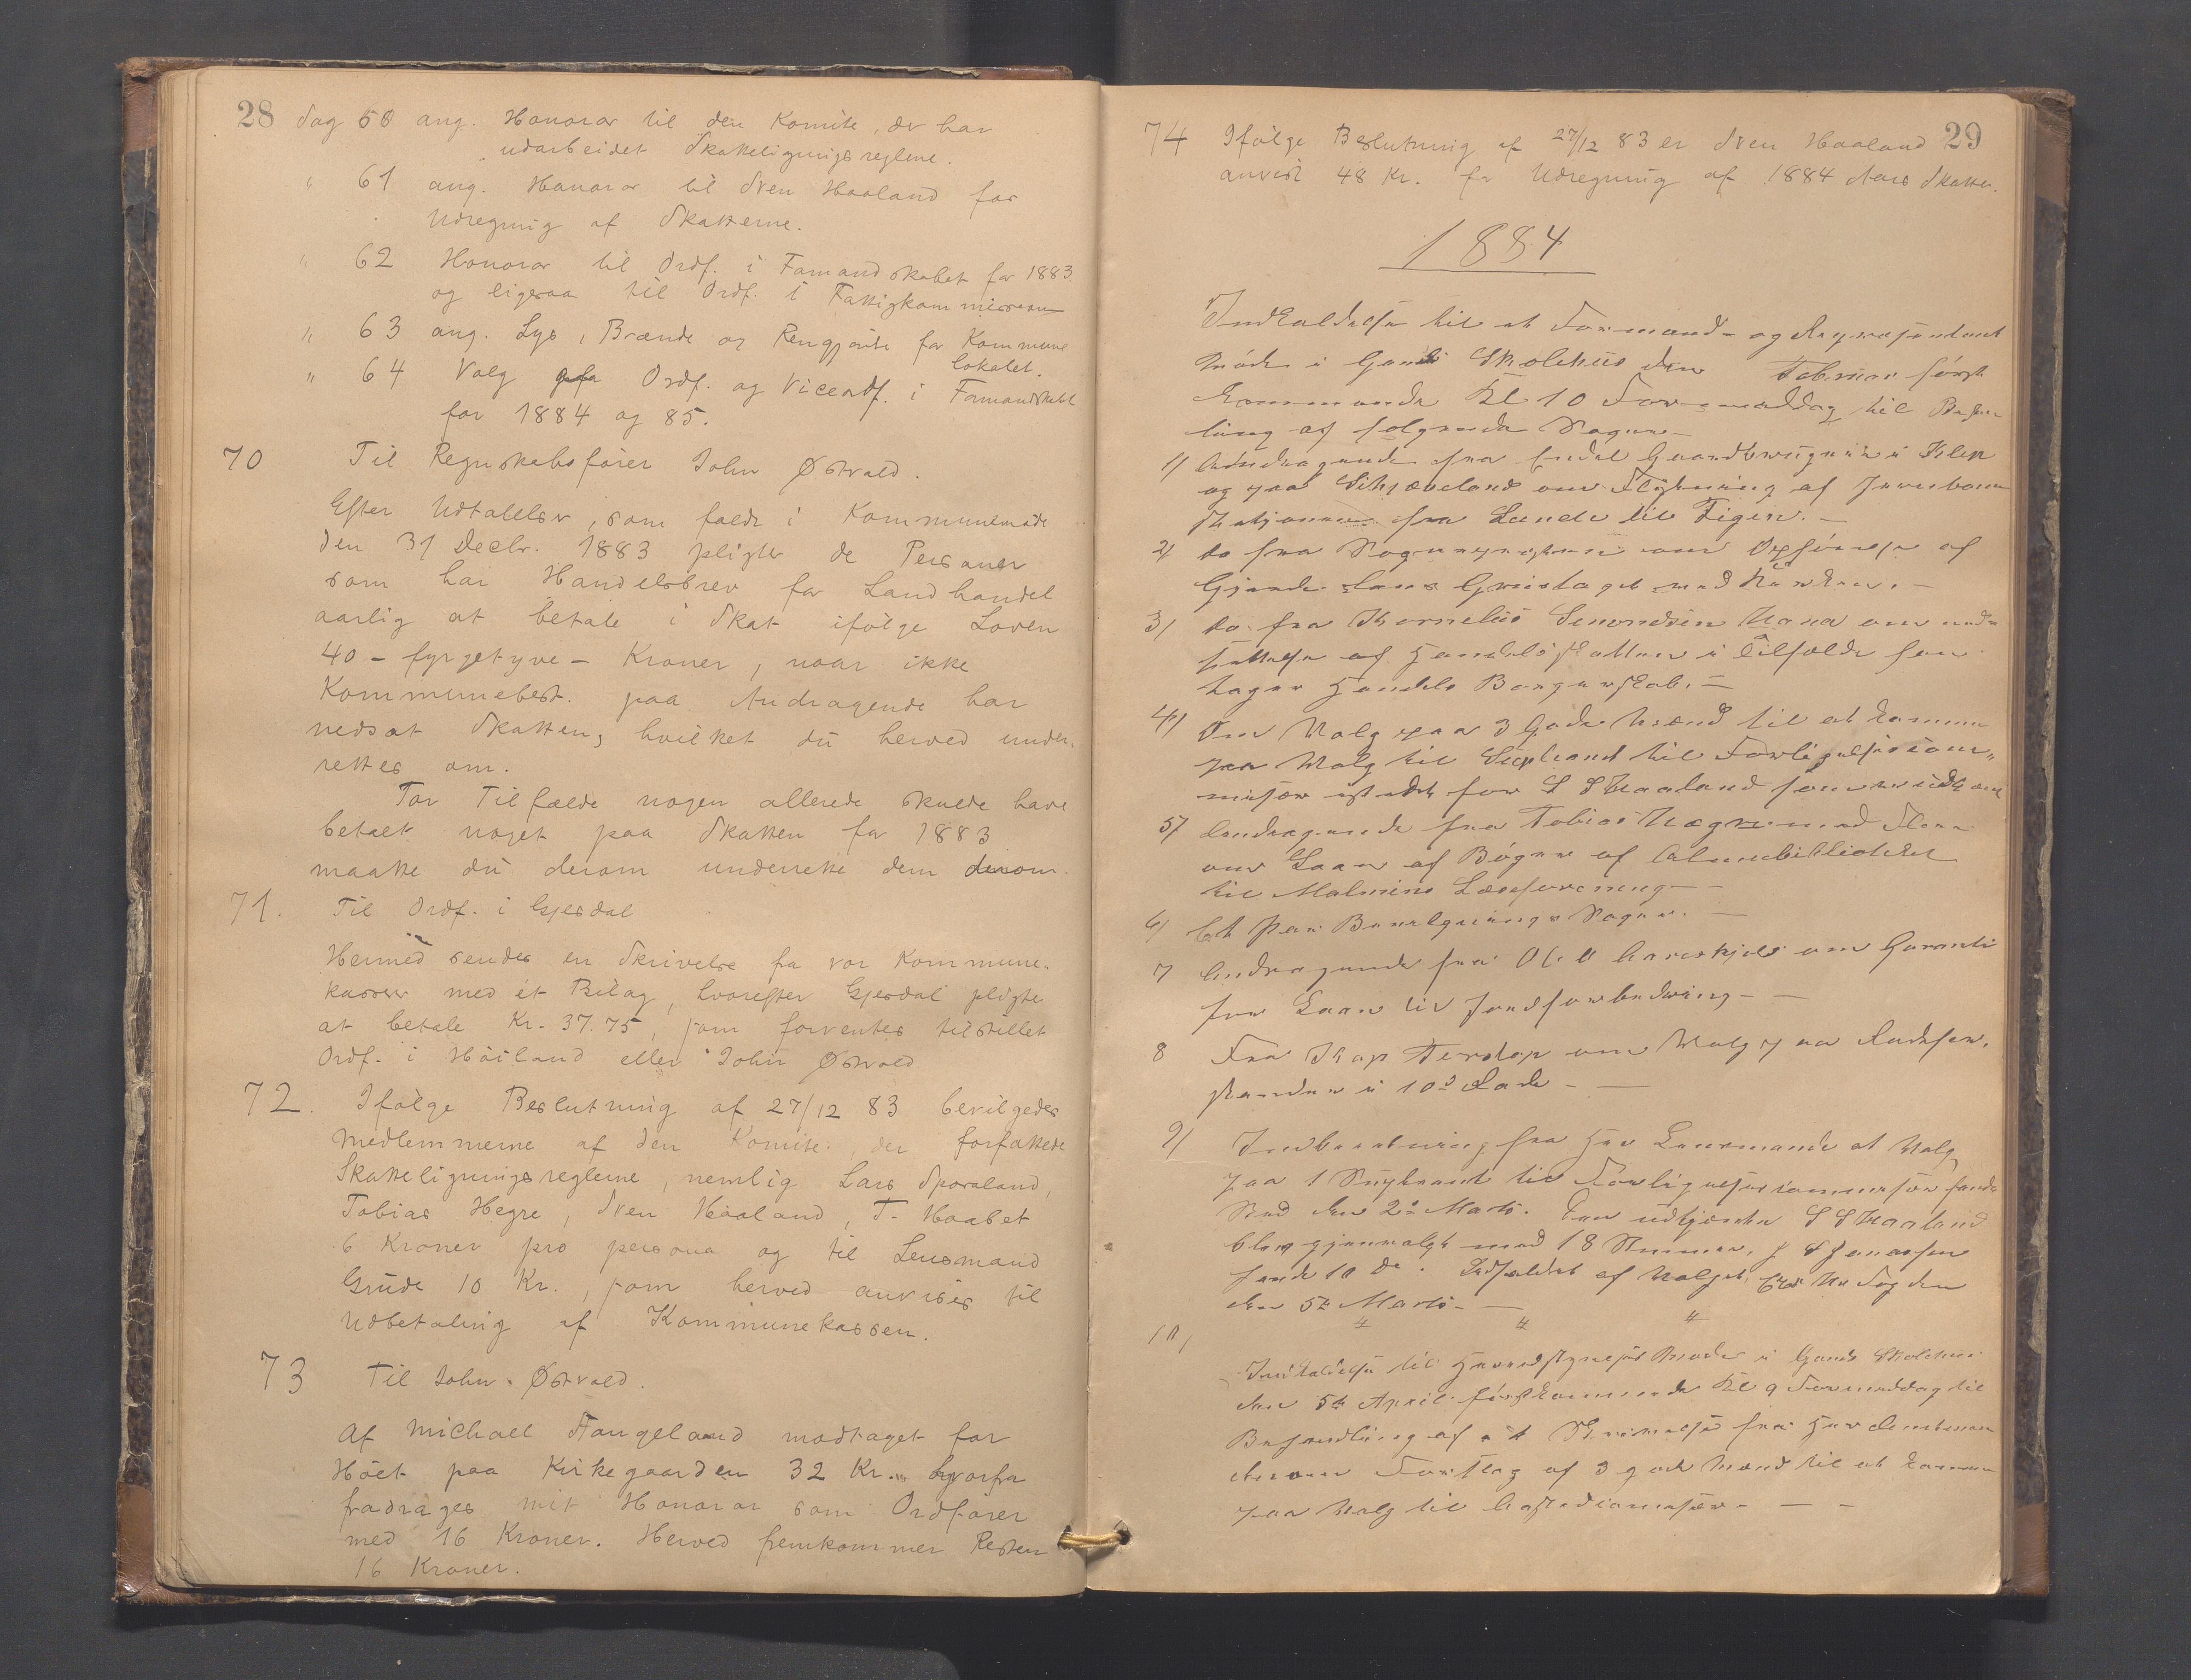 28 Sag 60 ang. Honorar til den Komite, der har
udarbeidet Skatteligningsreglene.
" 61 ang. Honorar til Sven Haaland for
Udregning af Skatterne.
" 62 Honorar til Ordf. i Formandskabet for 1883.
og ligesaa til Ordf. i Fattigkommissionen
" 63 ang. Lys, Brænde og Rengjørelse for Kommune
lokalet.
" 64 Valg paa Ordf. og Viceordf. i Formandskabet
for 1884 og 85.
70 Til Regnskabsfører John Østvold.
Efter Udtalelser, som faldt i Kommunemøde
den 31 Decbr. 1883 pligter de Personer
som har Handelsbrev for Landhandel
aarlig at betale i Skat ifølge Loven
40 - fyrgetyve - Kroner, naar ikke
Kommunebest. paa Andragende har
nedsat Skatten, hvilket du herved under-
rettes om.
For Tilfælde nogen allerede skulde have
betalt noget paa Skatten for 1883
maatte du derom underrette dem derom.
71. Til Ordf. i Gjesdal
Hermed sendes en Skrivelse fra vor Kommune-
kasser med et Bilag, hvorefter Gjesdal pligter
at betale Kr. 37.75, som forventes tilstillet
Ordf. i Høiland eller John Østvold
72. Ifølge Beslutning af 27/12 83 bevilgedes
Medlemmerne af den Komite der forfattede
Skatteligningsreglerne, nemlig Lars Sporaland,
Tobias Hegre, Sven Haaland, T. Haabet
6 Kroner pro persona og til Lensmand
Grude 10 Kr., som herved anvises til
Udbetaling af Kommunekassen.
73 Til John Østvold.
Af Michael Stangeland modtaget for
Høet paa Kirkegaarden 32 Kr. hvorfra
fradrages mit Honorar som Ordfører
med 16 Kroner. Herved fremkommer Resten
16 Kroner.
29
74 Ifølge Beslutning af 27/12 83 er Sven Haaland
anvist 48 Kr. for Udregning af 1884 Aars Skatter.
1884
Indkaldelse til et Formand- og Repræsentant
møde i Gand Skolehus den Februar først
kommende Kl 10 Formiddag til Behand
ling af følgende Sager
1) Andragende fra Endel Gaardbrugere i Klep
og paa Skjæveland om Flytning af Jernbane
stationen fra Lunde til Figen.
2) do fra Sognepresten om Opførelse af
Gjærde langs Grustaget ved Kirken.
3) do. fra Kornelius Simonsen Hana om ned-
sættelse af Handelsskatten i Tilfælde han
tager Handels Borgerskab.
4) Om Valg paa 3 Gode Mænd til at komme
paa Valg til Supleant til Forligelseskom-
misær istedet for S S Haaland som
5) Andragende fra Tobias Hegre med Flere
om Laan af Bøger af Almuebibliothek
til Malmeins Læseforening
6) Et Par Bevilgnings Sager.
7 Andragende fra om Garanti
for Laan til Jordforbedring
8 Fra om Valg paa
i 10 Rode
9) Indberetning fra Hr Lensmand at Valg
paa 1 Suppleant til Forligelseskommissær fandt
Sted den 2 Marts. Den udtjente S S Haaland
blev gjenvalgt med 18 Stemmer, J S Jonassen
havde 10 do. Udfaldet af Valget
den 5te Marts
10) Indkaldelse til Herredsstyrelses Møde i Gand Skolehus
den 5te April førstkommende Kl 9 Formiddag til
Behandling af et Skrivelse fra Hr Amtmand
den om Forslag af 3 gode Mænd til at komme
paa Valg til